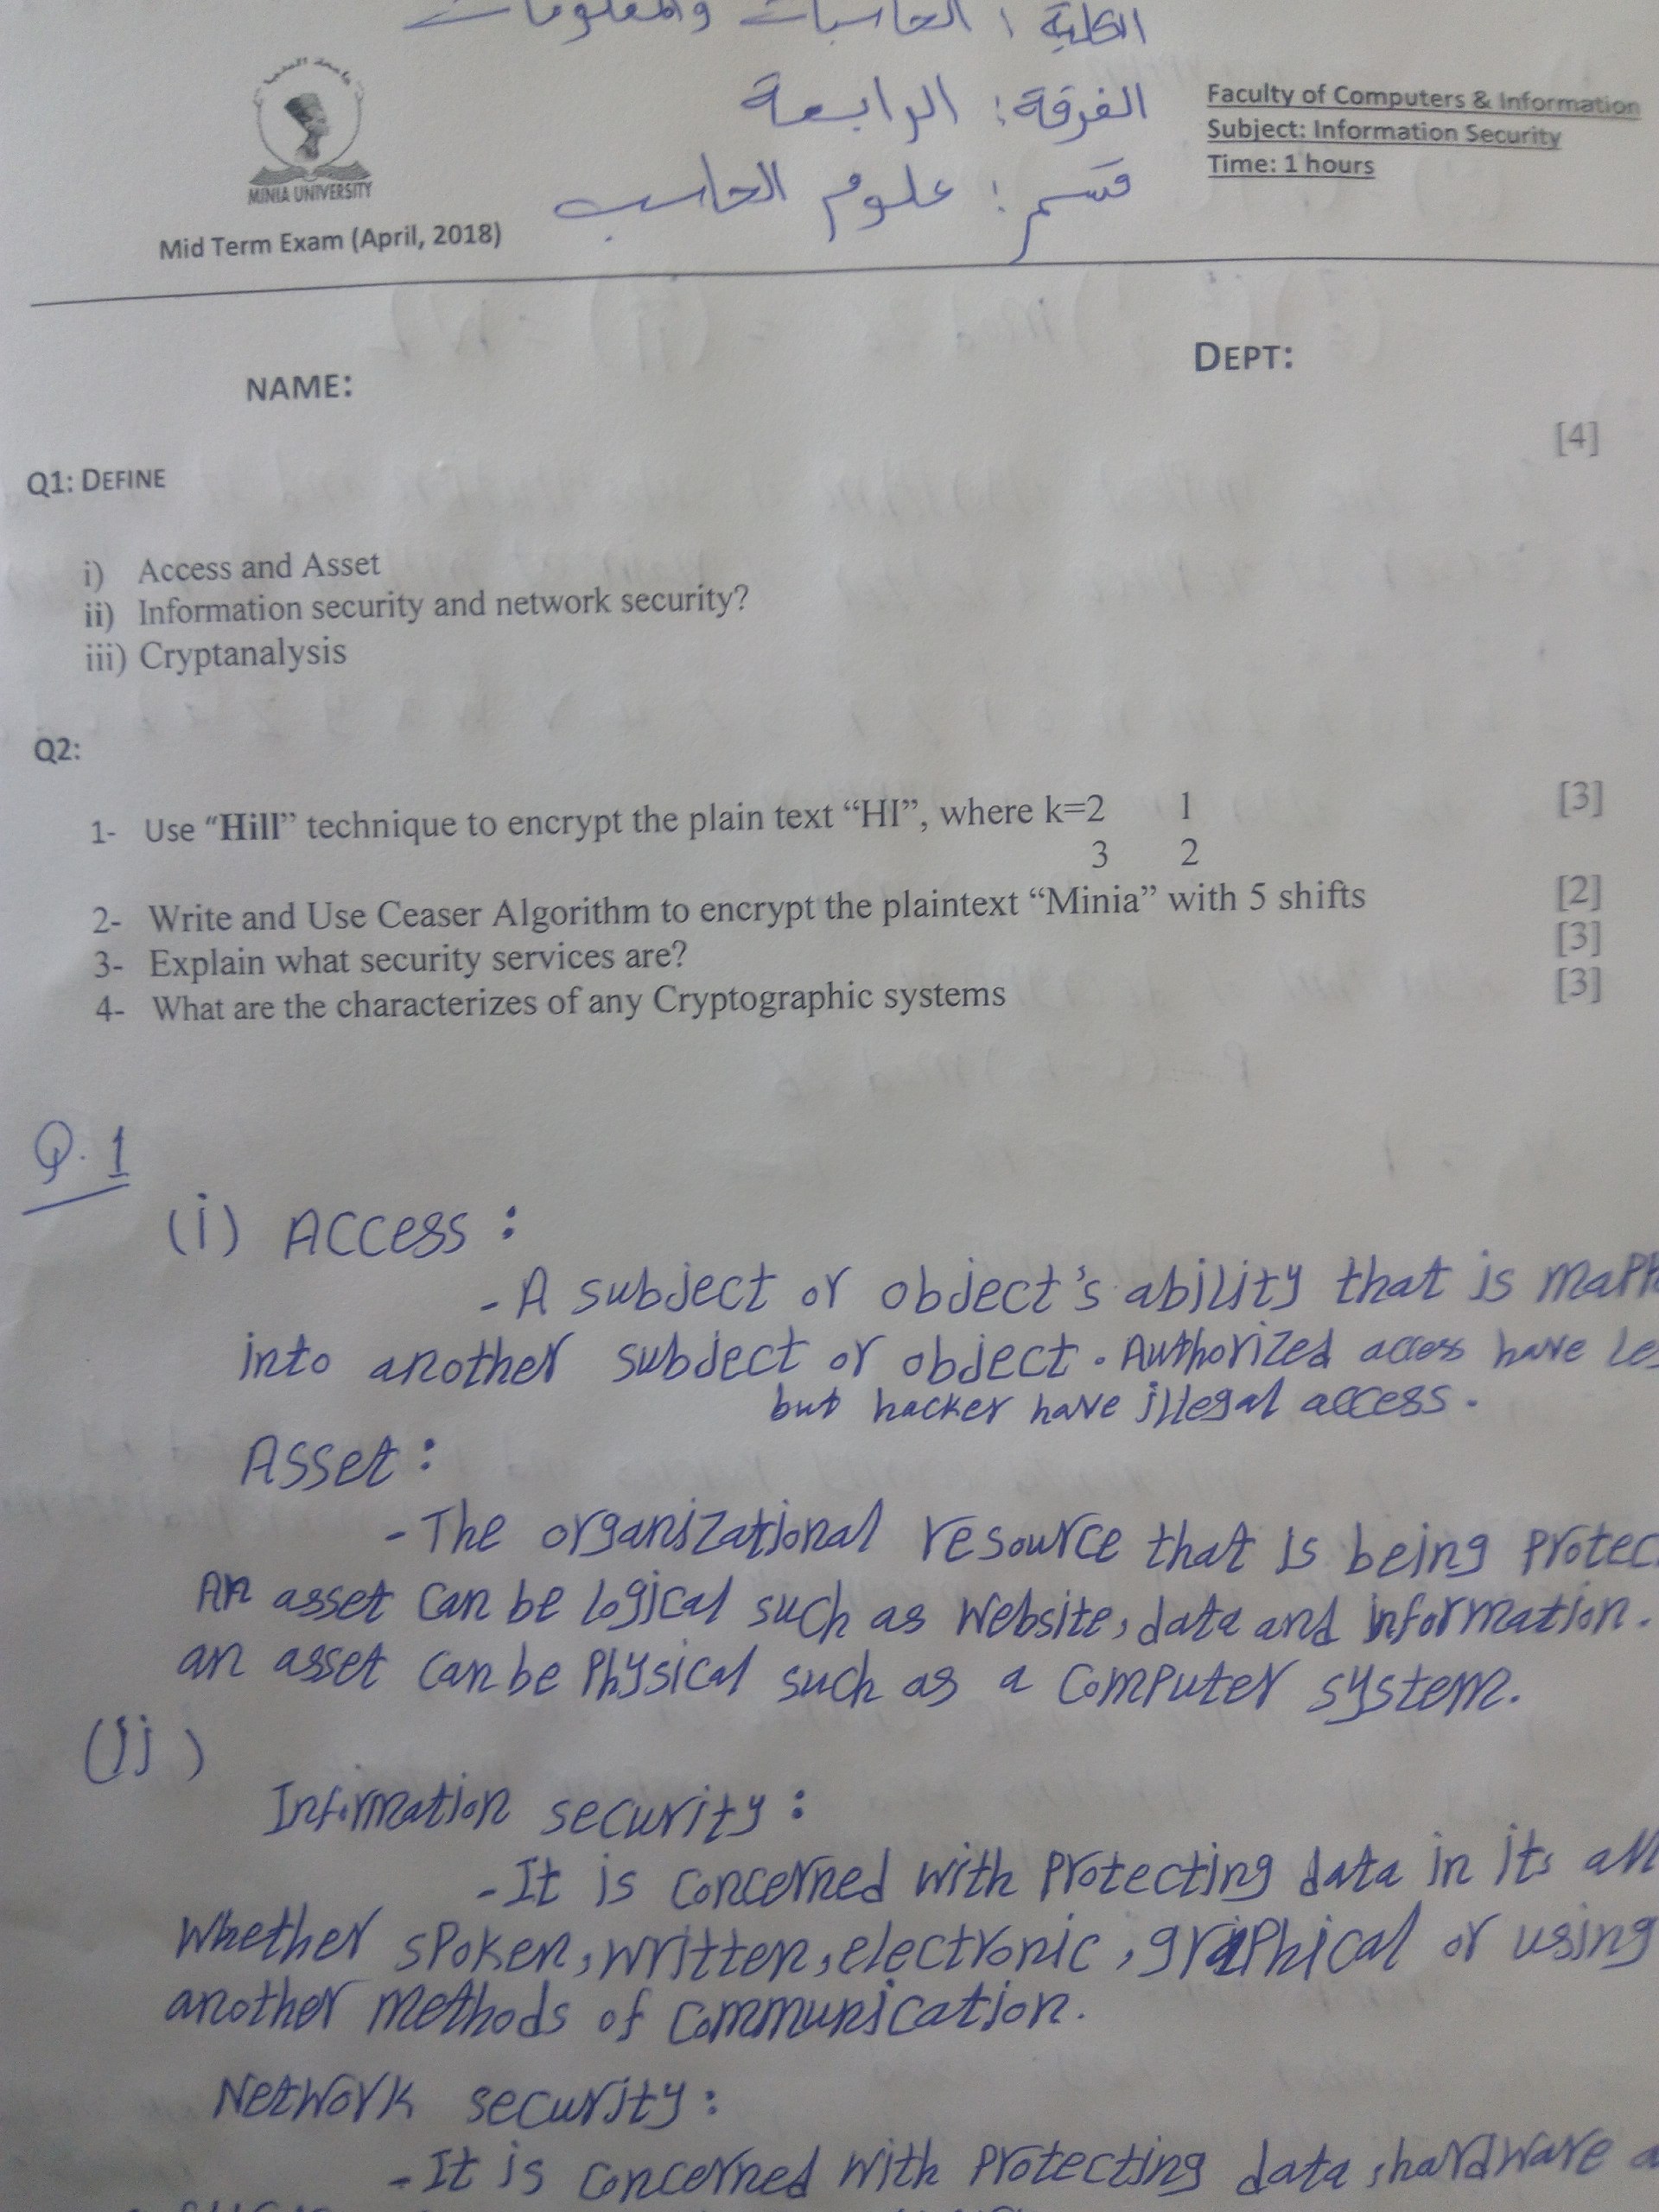 الكلية : الحاسبات والمعلومات
الفرقة : الرابعة
قسم : علوم الحاسب
جامعة المنيا
MINIA UNIVERSITY
Mid Term Exam (April, 2018)
Faculty of Computers & Information
Subject: Information Security
Time: 1 hours
NAME:
DEPT:
[4]
Q1: DEFINE
i) Access and Asset
ii) Information security and network security?
iii) Cryptanalysis
Q2:
1- Use “Hill” technique to encrypt the plain text “HI”, where k=2 1 [3]
3 2
2- Write and Use Ceaser Algorithm to encrypt the plaintext “Minia” with 5 shifts [2]
3- Explain what security services are? [3]
4- What are the characterizes of any Cryptographic systems [3]
Q.1
(i) Access :
- A subject or object's ability that is
into another subject or object. Authorized access have
but hacker have illegal access.
Asset :
- The organizational resource that is being Protec
An asset can be logical such as Website, data and information.
an asset can be Physical such as a Computer system.
(ii)
Information security :
- It is concerned with Protecting data in its all
Whether spoken, written, electronic, graphical or using
another methods of communication.
Network security :
- It is concerned with Protecting data, hardware